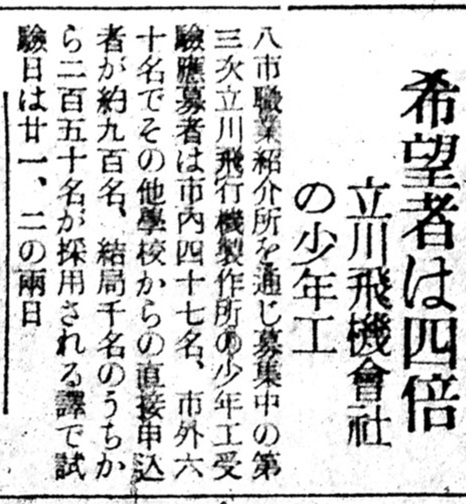 希望者は四倍
立川飛機會社
の少年工
八市職業紹介所を通じ募集中の第
三次立川飛行機製作所の少年工受
驗應募者は市內四十七名、市外六
十名でその他學校からの直接申込
者が約九百名、結局千名のうちか
ら二百五十名が採用される譯で試
驗日は廿一、二の兩日